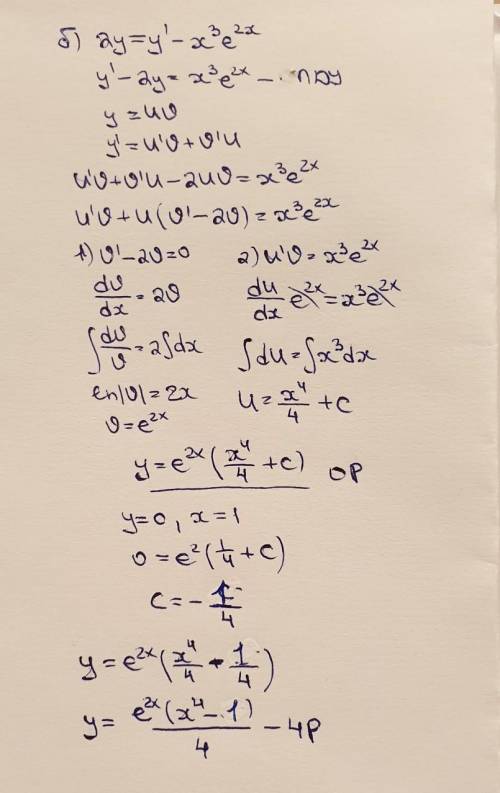 б) 2y=y'-x³e²ˣ
y'-2y=x³e²ˣ - ЛДУ
y=uϑ
y'=u'ϑ+ϑ'u
u'ϑ+ϑ'u-2uϑ=x³e²ˣ
u'ϑ+u(ϑ'-2ϑ)=x³e²ˣ
1) ϑ'-2ϑ=0
dϑ/dx=2ϑ
∫dϑ/ϑ=2∫dx
ln|ϑ|=2x
ϑ=e²ˣ
2) u'ϑ=x³e²ˣ
du/dx e²ˣ=x³e²ˣ
∫du=∫x³dx
u=x⁴/4+c
y=e²ˣ(x⁴/4+c) OP
y=0, x=1
0=e²(1/4+c)
c=-1/4
y=e²ˣ(x⁴/4-1/4)
y=e²ˣ(x⁴-1)/4 - ЧР